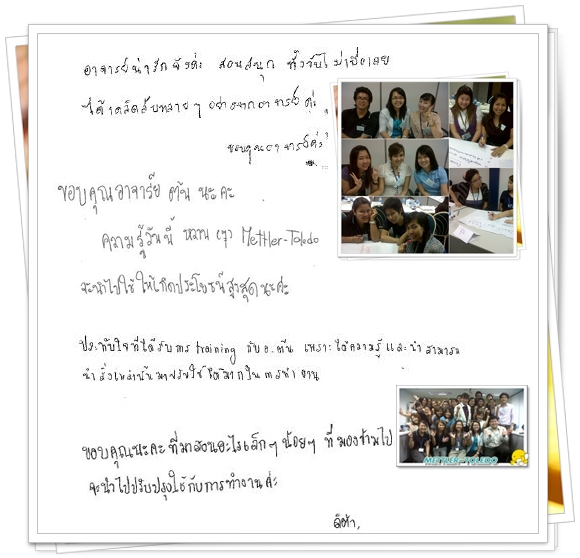 อาจารย์น่ารักจังค่ะ สอนสนุก ทั้งวันไม่น่าเบื่อเลย
ได้เคล็ดลับหลายๆ อย่างจากอาจารย์ค่ะ
ขอบคุณอาจารย์ค่ะ
ขอบคุณอาจารย์ ตัน นะคะ
ความรู้วันนี้ หลาน Mettler-Toledo
จะนำไปใช้ให้เกิดประโยชน์สูงสุดนะค่ะ
ประทับใจที่ได้รับการ training กับอ.ตัน เพราะได้ความรู้และนำ สามารถ
นำสิ่งเหล่านั้นมาปรับใช้ได้มากในการทำงาน
ขอบคุณนะคะที่มาสอนอะไรเล็กๆ น้อยๆ ที่มองข้ามไป
จะนำไปปรับปรุงใช้กับการทำงานค่ะ
METTLER-TOLEDO